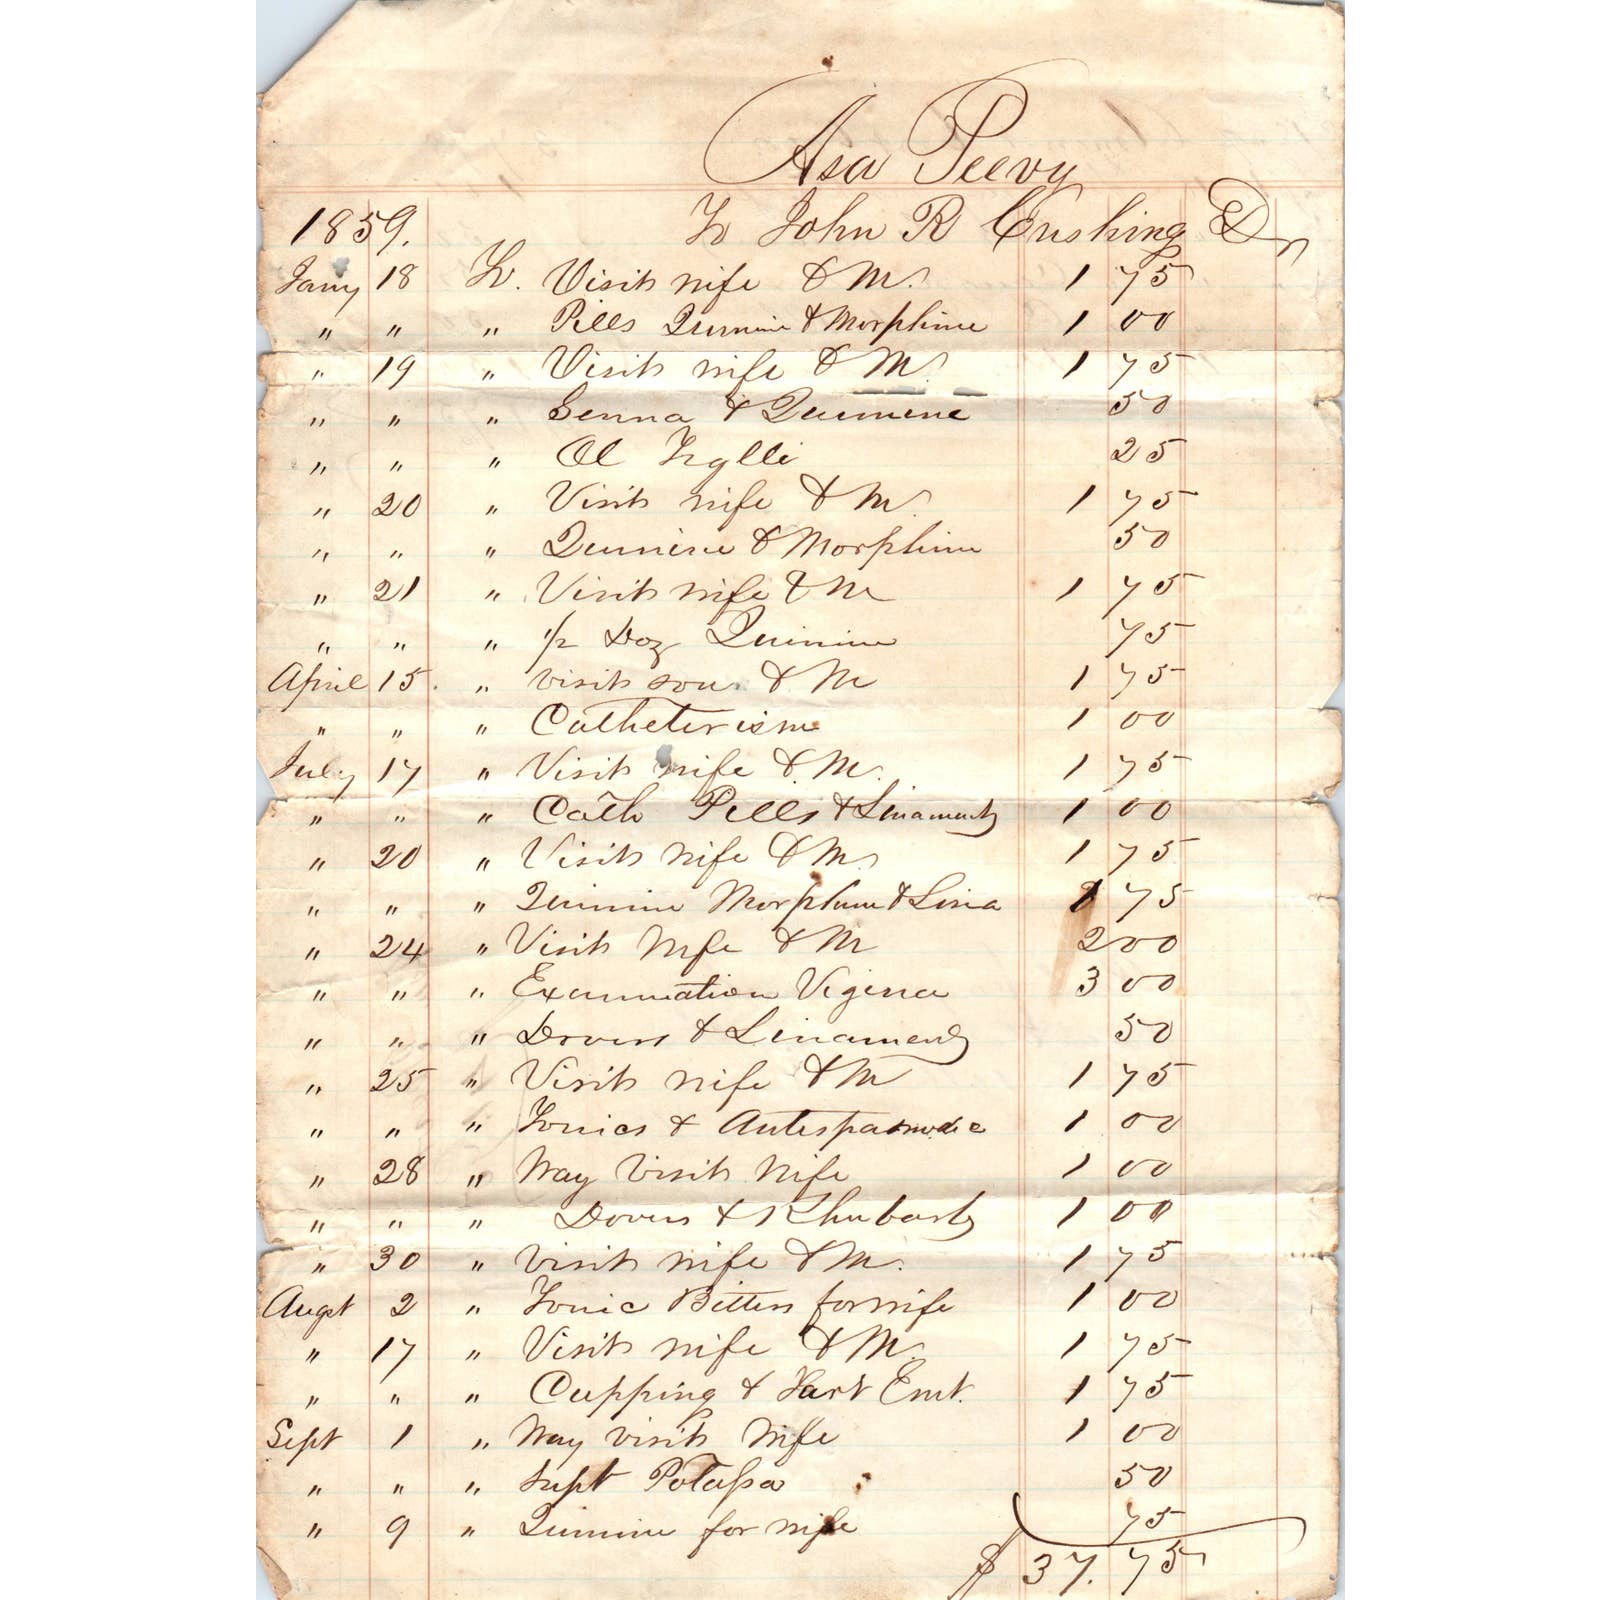 Asa Peevy
1859. To John R Cushing Dr
Jany 18 To. Visit wife & M. 1 75
" " " Pills Quinine & Morphine 1 00
" 19 " Visit wife & M. 1 75
" " " Senna & Quinine 50
" " " Ol Tiglli 25
" 20 " Visit wife & M. 1 75
" " " Quinine & Morphine 50
" 21 " Visit wife & M 1 75
" " " 1/2 Doz Quinine 75
April 15. " visit son & M 1 75
" " " Catheterism 1 00
July 17 " Visit wife & M. 1 75
" " " Cath Pills & Linament 1 00
" 20 " Visit wife & M. 1 75
" " " Quinine Morphine & Lina 1 75
" 24 " Visit Wife & M 2 00
" " " Examination Vigina 3 00
" " " Dovers & Linament 50
" 25 " Visit wife & M 1 75
" " " Tonics & Antespasmodic 1 00
" 28 " Way Visit Wife 1 00
" " " Dovers & Rhubarb 1 00
" 30 " Visit wife & M. 1 75
Augst 2 " Tonic Bitters for wife 1 00
" 17 " Visit wife & M. 1 75
" " " Cupping & Tart Emt. 1 75
Sept 1 " Way visit Wife 1 00
" " " Supt Potassa 50
" 9 " Quinine for wife 75
$ 37.75